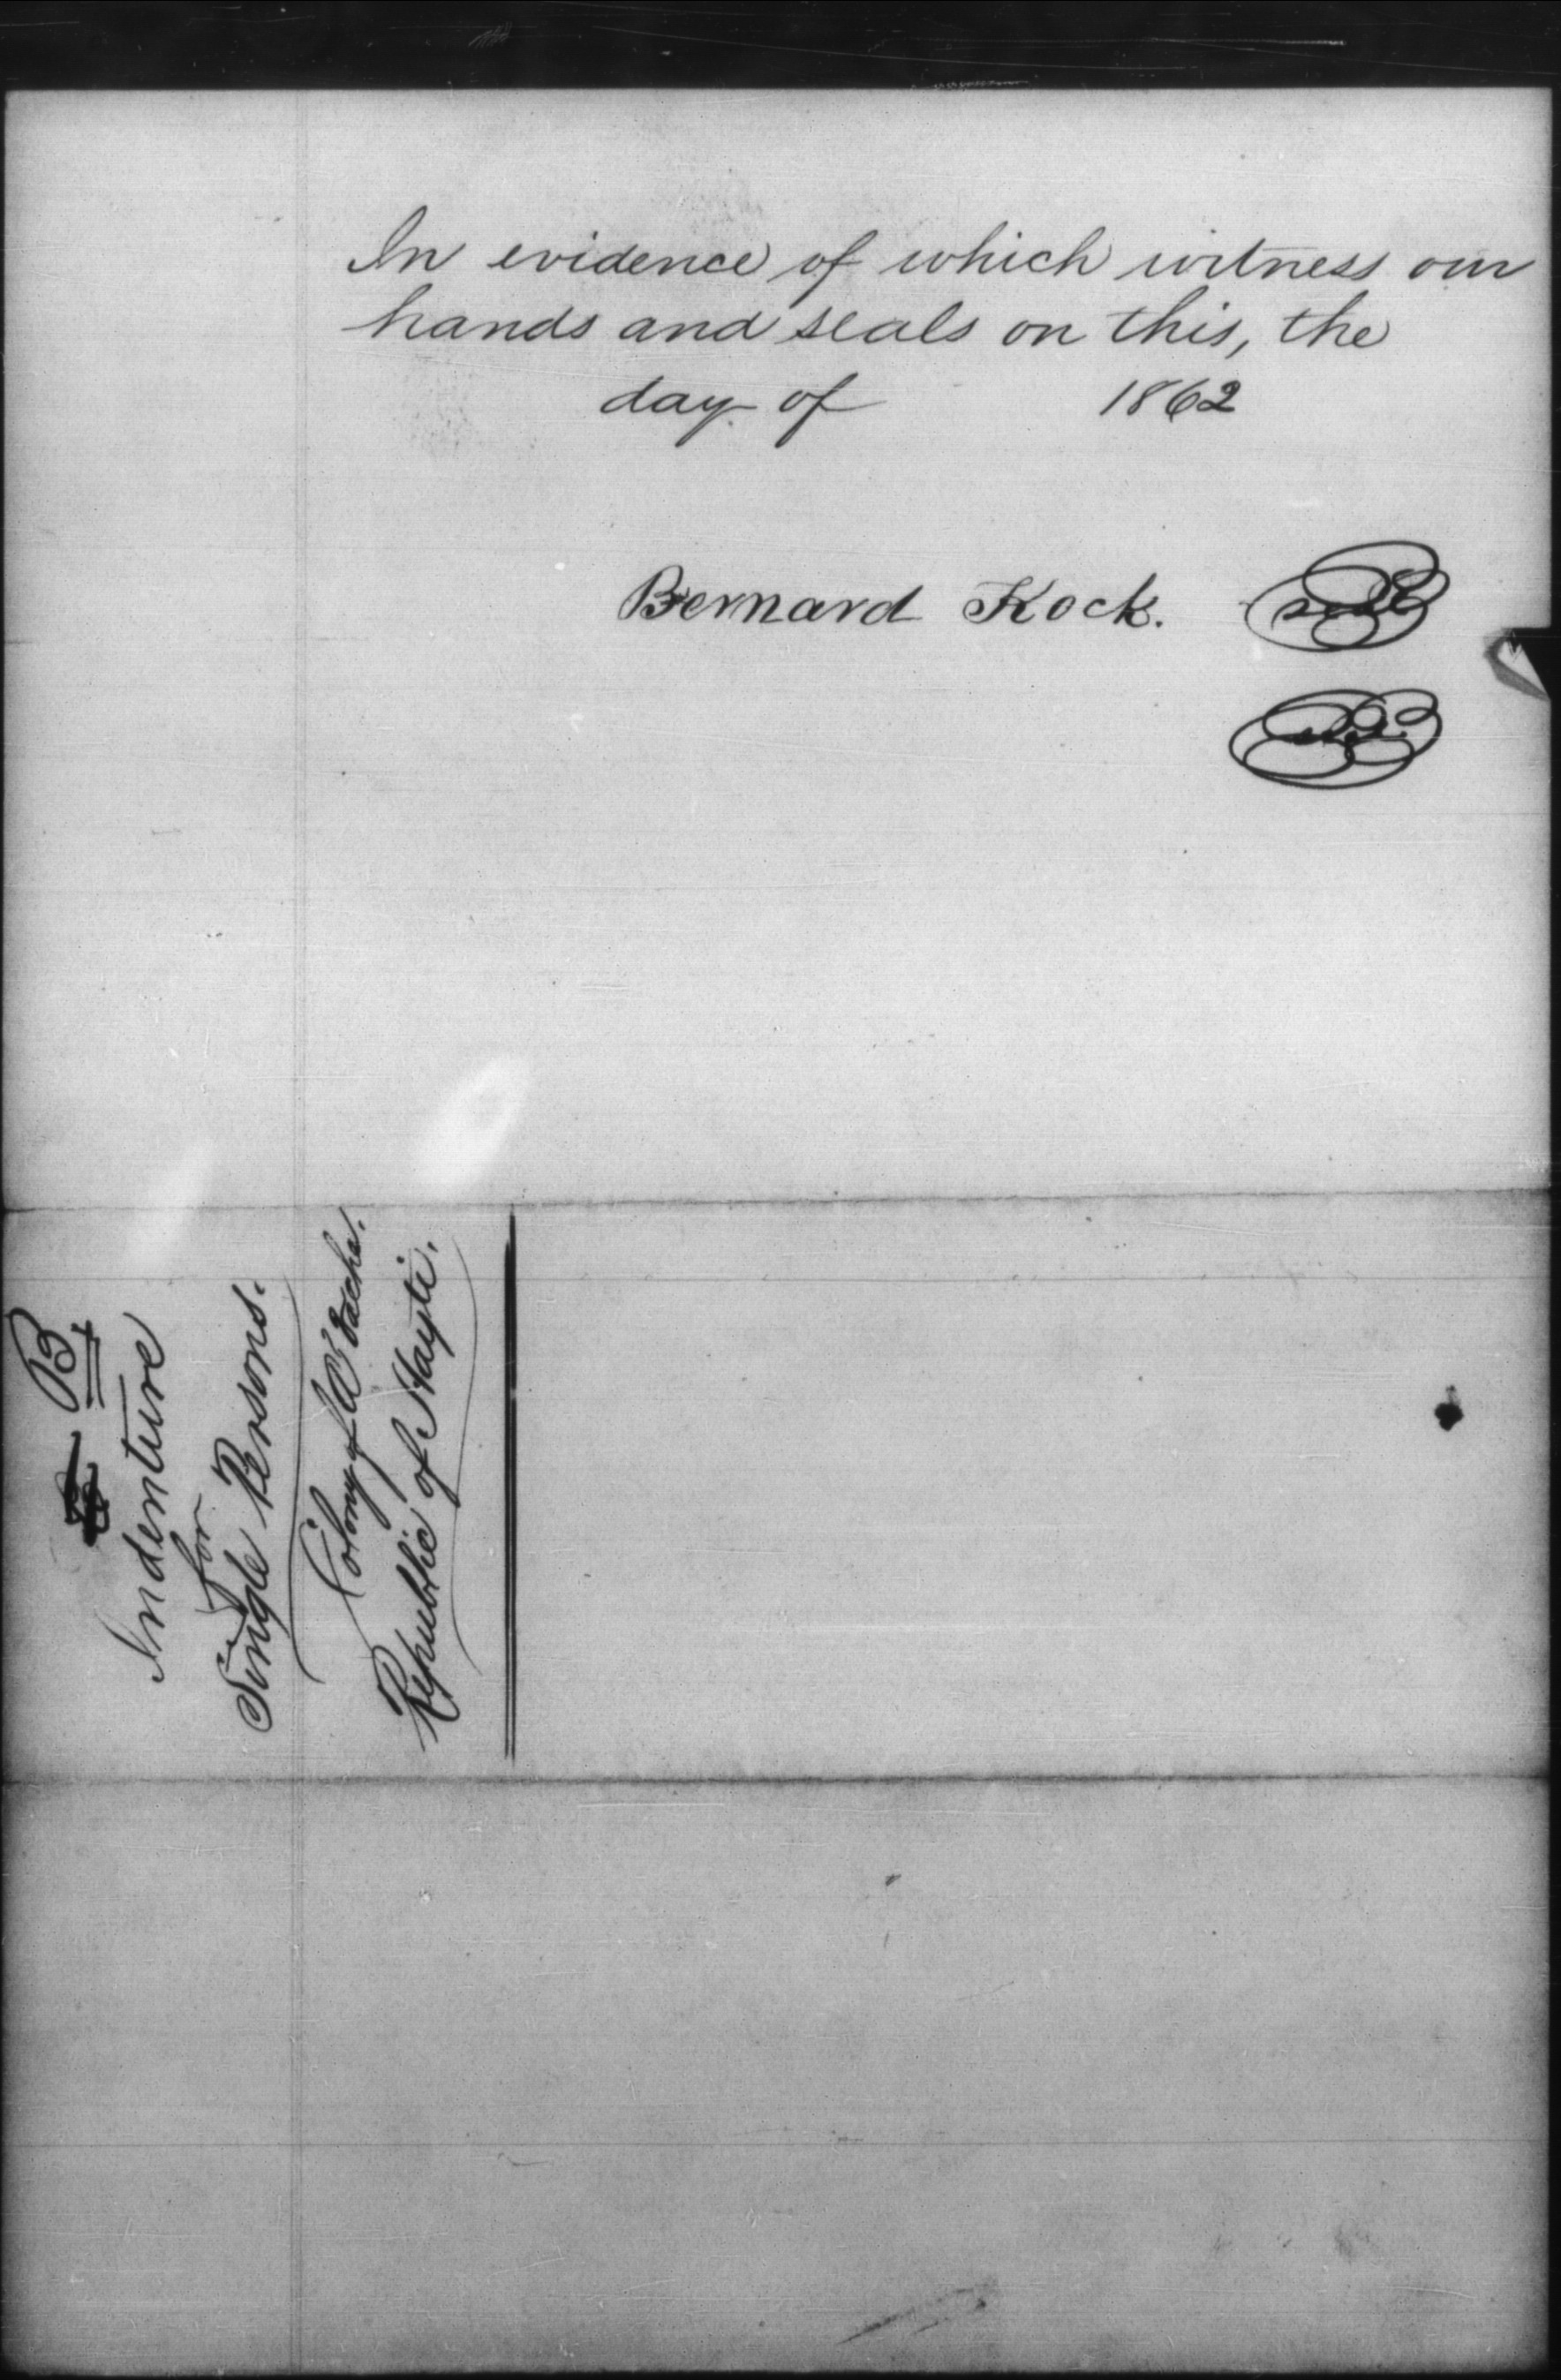 In evidence of which witness our
hands and seals on this, the
day of 1862
Bernard Kock. seal
seal
B
Indenture
for
Single Persons.
Colony of A'Vacha.
Republic of Hayti.